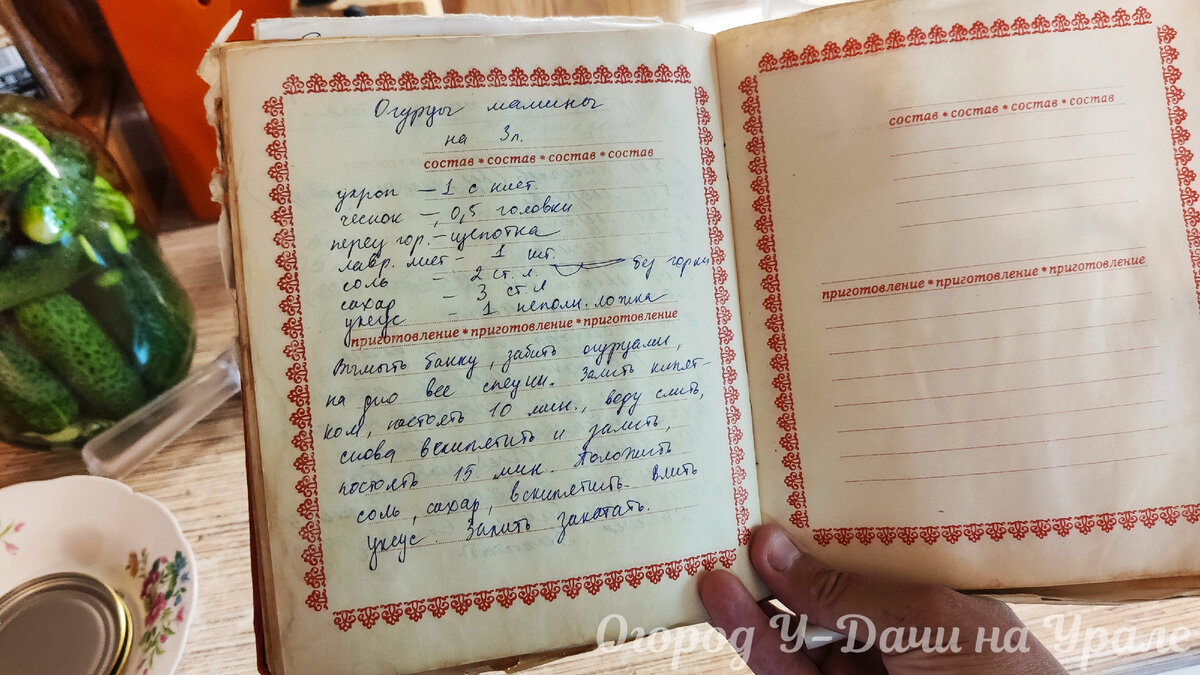 Огурцы мамины
на 3л.
состав * состав * состав * состав
укроп – 1 с клет.
чеснок – 0,5 головки
перец гор. – щепотка
лавр. лист – 1 шт.
соль – 2 ст. л. без горки
сахар – 3 ст. л
уксус – 1 неполн. ложка
приготовление * приготовление * приготовление
Вымыть банку, забить огурцами,
на дно все специи. Залить кипят-
ком, настоять 10 мин., воду слить,
снова вскипятить и залить,
постоять 15 мин. Положить
соль, сахар, вскипятить. Влить
уксус. Залить закатать.
состав * состав * состав * состав
приготовление * приготовление * приготовление
Огород У-Дачи на Урале